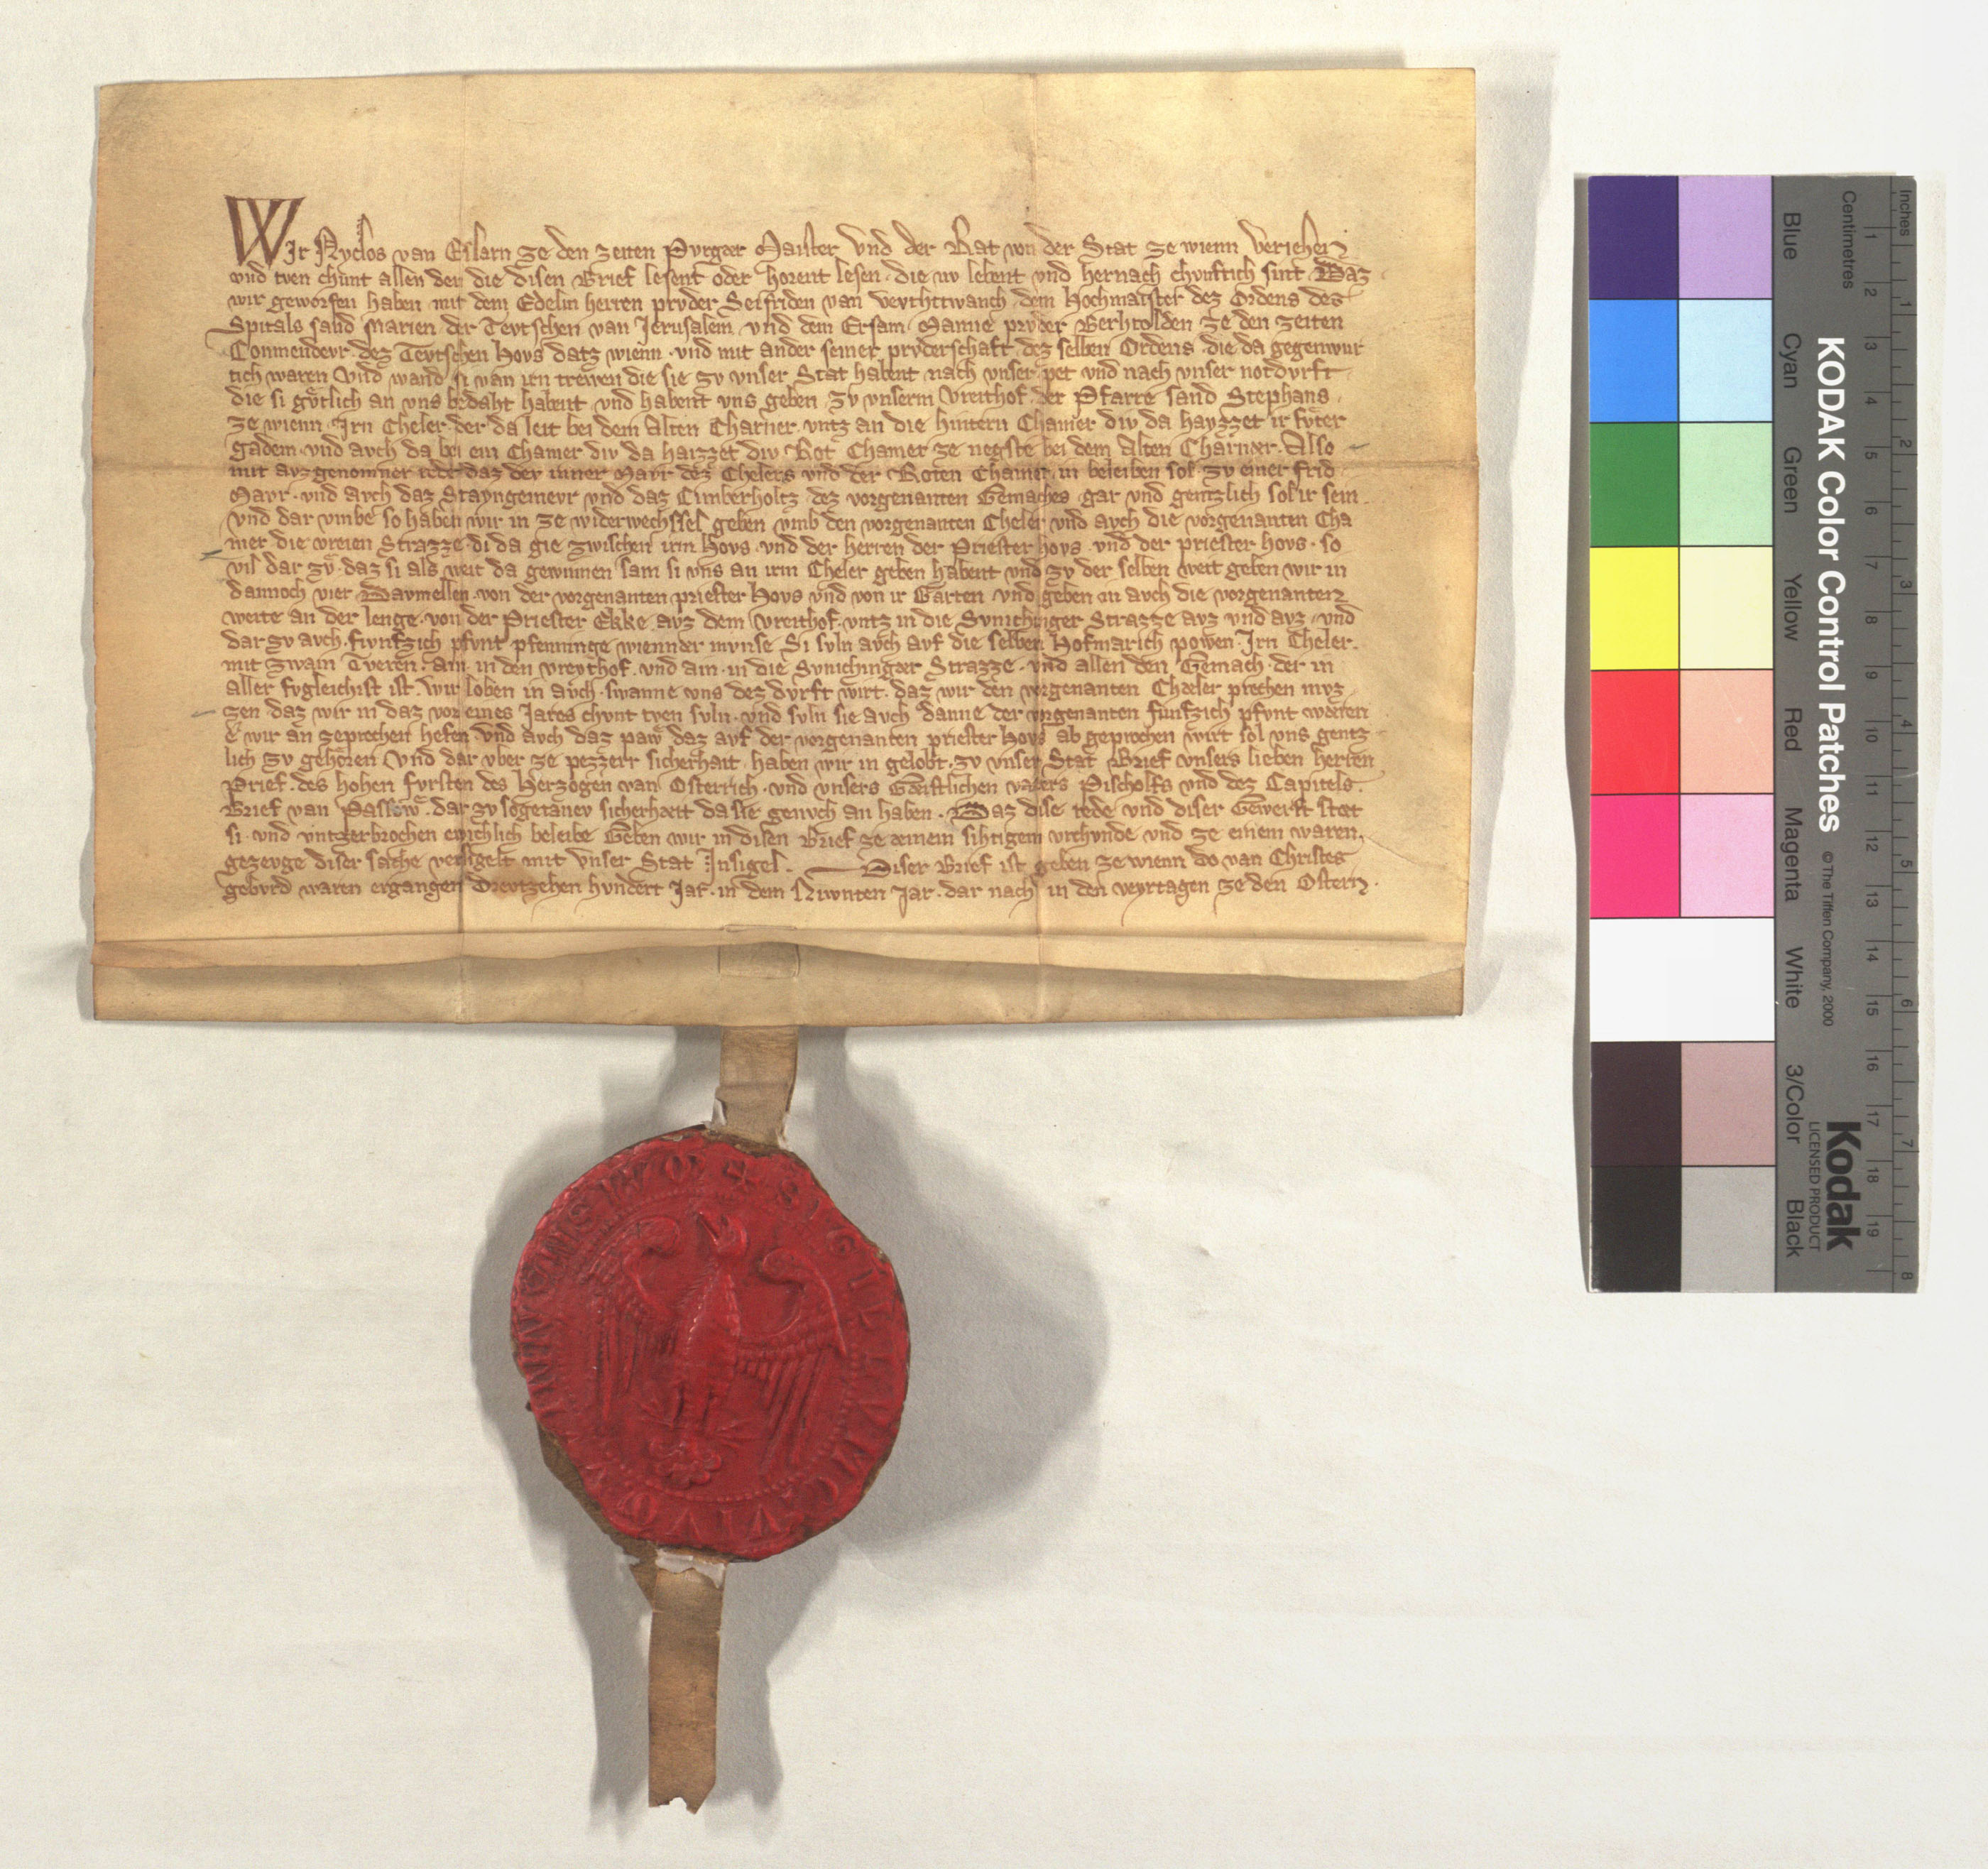 Wir Nyclos van Eslarn ze den zeiten Pvrger Maister vnd der Rat von der Stat ze wienn veriehen
vnd tven chunt allen den die disen Brief lesent oder horent lesen · die nv lebent vnd hernach chvnftich sint · Daz
wir geworfen haben mit dem Edelin herren prvder Seifriden van Vevhttwanch dem Hochmaister dez Ordens des
Spitals sand Marien der Tevtschen van Jerusalem vnd dem Ersam Manne prvder Berhtolden ze den zeiten
Commendevr dez Tevtschen Hovs datz wienn · vnd mit ander seiner prvderschaft dez selben Ordens die da gegenwur
tich waren Vnd wand si van irn trewen die sie zv vnser Stat habent nach vnser pet vnd nach vnser notdvrft
die si gvtlich an vns bedaht habent vnd habent vns geben zv vnserm Vreithof der Pfarre sand Stephans
ze wienn · Irn Cheler der da leit bei dem Alten Charner vntz an die hintern Chamer div da hayzzet ir fvter
gadem · vnd avch da bei ein Chamer div da haizzet div Rot Chamer ze negste bei dem Alten Charner · Also
mit avzgenomner rede daz der inner Mavr dez Chelers vnd der Roten Chamer in beleiben sol zv einer frid
Mavr · vnd avch daz Stayngemevr vnd daz Cimberholtz dez vorgenanten Gemaches gar vnd gentzlich sol ir sein
vnd dar vmbe so haben wir in ze widerwechssel geben vmb den vorgenanten Cheler vnd avch die vorgenanten Cha
mer die vreien Strazze · di da gie zwischen irm Hovs · vnd der herren der Priester hovs · vnd der priester hovs · so
vil dar zv · daz si als weit da gewinnen sam si vns an irm Cheler geben habent vnd zv der selben weit geben wir in
dannoch vier Davmellen · von der vorgenanten priester Hovs vnd von ir Garten vnd geben in avch die vorgenanten
weite an der lenge · von der Priester Ekke avz dem Vreithof · vntz in die Synichinger Strazze avz vnd avz · vnd
dar zv avch · fvnfzich pfvnt pfenninge wienner mvnse Si svln avch avf die selben Hofmarich powen · Irn Cheler ·
mit zwain Tveren · Ain in den vreythof · vnd ain · in die Synichinger Strazze · vnd allen den Gemach · der in
aller fvgleichist ist · wir loben in avch · swanne vns dez dvrft wirt · daz wir den vorgenanten Cheler prechen mvz
zen daz wir in daz vor eines Jares chvnt tven svln · vnd svln sie avch danne der vorgenanten funfzich pfvnt weren
e wir an geprechen heten vnd avch daz paw daz avf der vorgenanten priester Hovs ab geprochen wirt sol vns gentz
lich zv gehoren Vnd dar vber ze pezzerr sicherhait · haben wir in gelobt · zv vnser Stat Brief vnsers lieben herren
Prief · des hohen fvrsten des Herzogen van Osterrich · vnd vnsers Geistlichen vaters Pischolfs vnd dez Capitels ·
Brief van Passow · dar zv sogetanev sicherheit da sie genvch an haben · Daz dise rede vnd diser Gewerft stet
si · vnd vntzerbrochen ewichlich beleibe Geben wir in disen Brief ze einem sihtigem vrchvnde vnd ze einem waren
gezevge diser sache versigelt mit vnser Stat Insigel · Diser Brief ist geben ze wienn do van Christes
gebvrd waren ergangen Drevtzehen hvndert Jar · in dem Nivnten Jar · dar nach in den veyrtagen ze den Ostern ·
+ SIGILLVM CIVIVM
KODAK Color Control Patches
© The Tiffen Company, 2000
Kodak
LICENSED PRODUCT
Blue
Cyan
Green
Yellow
Red
Magenta
White
3/Color
Black
Centimetres
1 2 3 4 5 6 7 8 9 10 11 12 13 14 15 16 17 18 19
Inches
1 2 3 4 5 6 7 8